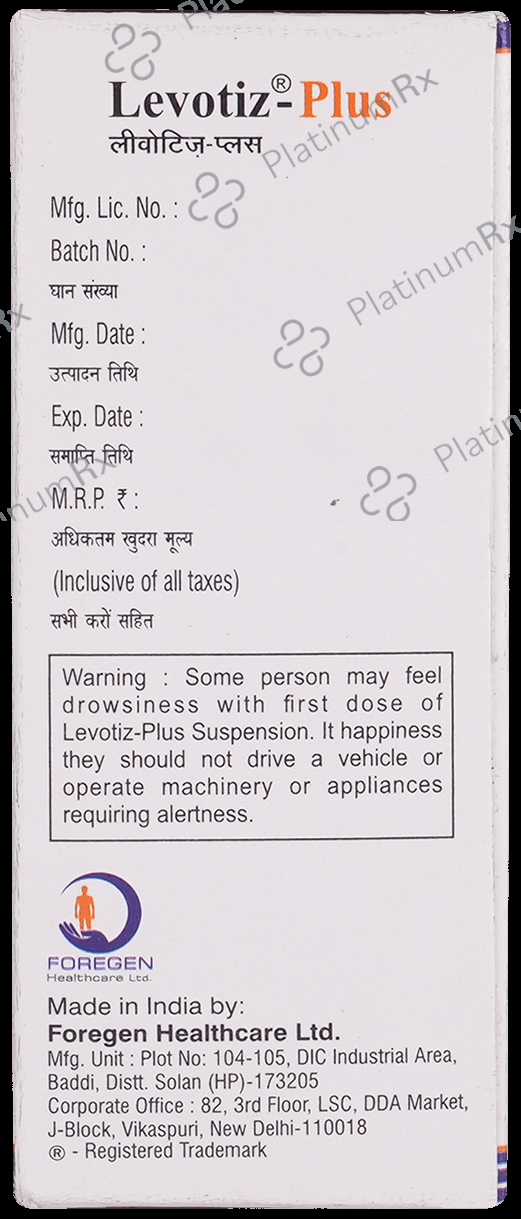 Levotiz®-Plus
लीवोटिज़-प्लस
Mfg. Lic. No. :
Batch No. :
घान संख्या
Mfg. Date :
उत्पादन तिथि
Exp. Date :
समाप्ति तिथि
M.R.P. ₹ :
अधिकतम खुदरा मूल्य
(Inclusive of all taxes)
सभी करों सहित
Warning : Some person may feel
drowsiness with first dose of
Levotiz-Plus Suspension. It happiness
they should not drive a vehicle or
operate machinery or appliances
requiring alertness.
FOREGEN
Healthcare Ltd.
Made in India by:
Foregen Healthcare Ltd.
Mfg. Unit : Plot No: 104-105, DIC Industrial Area,
Baddi, Distt. Solan (HP)-173205
Corporate Office : 82, 3rd Floor, LSC, DDA Market,
J-Block, Vikaspuri, New Delhi-110018
® - Registered Trademark
PlatinumRx
PlatinumRx